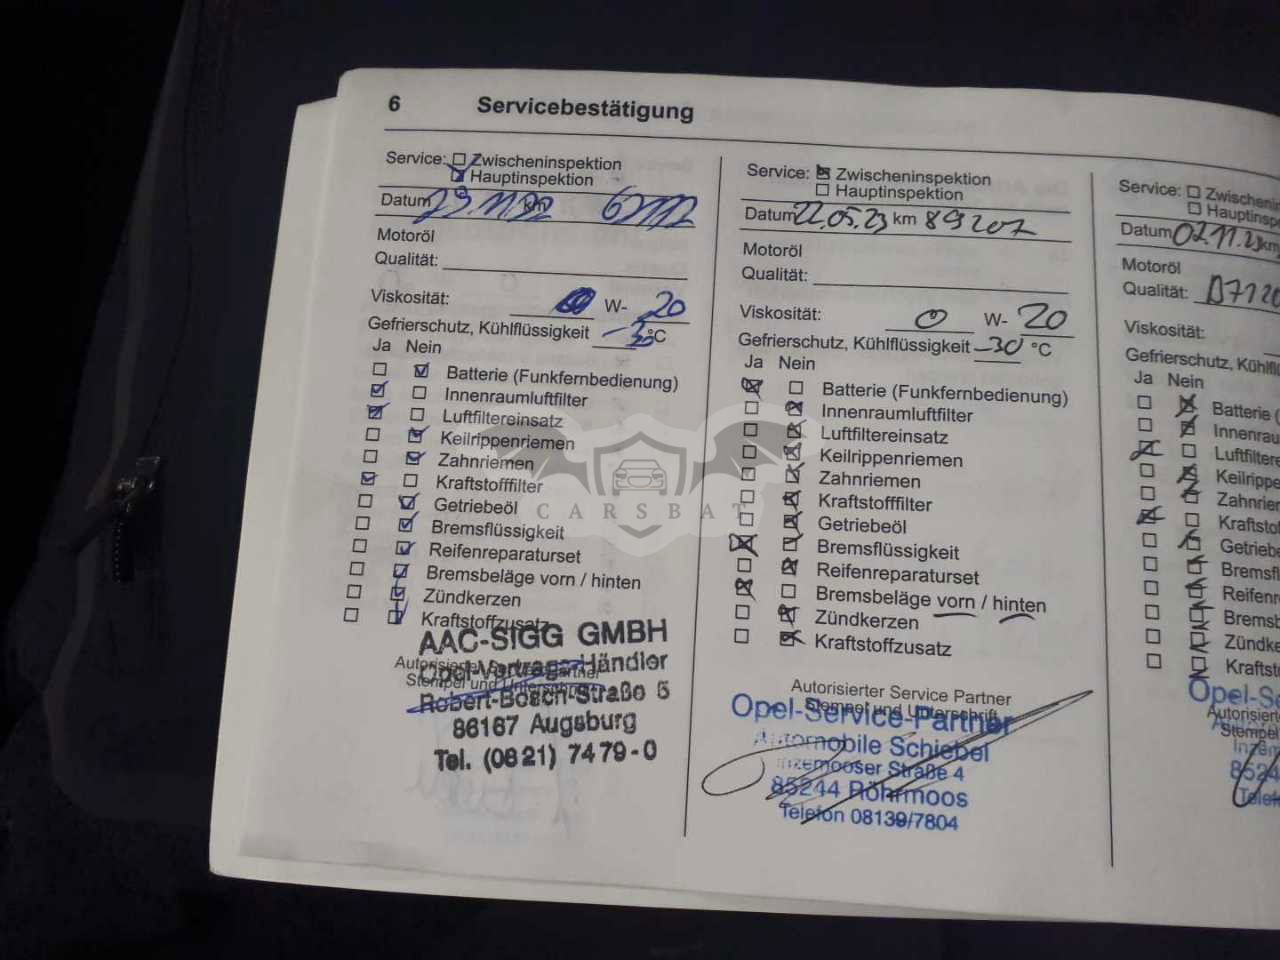 6 Servicebestätigung
Service: Zwischeninspektion
Hauptinspektion
Datum 29.11.22 km
Motoröl
Qualität:
Viskosität: W- 20
Gefrierschutz, Kühlflüssigkeit -30 °C
Ja Nein
Batterie (Funkfernbedienung)
Innenraumluftfilter
Luftfiltereinsatz
Keilrippenriemen
Zahnriemen
Kraftstofffilter
Getriebeöl
Bremsflüssigkeit
Reifenreparaturset
Bremsbeläge vorn / hinten
Zündkerzen
Kraftstoffzusatz
AAC-SIGG GMBH
Autorisierter Service Partner
Opel-Vertrags-Händler
Stempel und Unterschrift
Robert-Bosch-Straße 5
86167 Augsburg
Tel. (0821) 7479-0
Service: Zwischeninspektion
Hauptinspektion
Datum 22.05.23 km 89207
Motoröl
Qualität:
Viskosität: 0 W- 20
Gefrierschutz, Kühlflüssigkeit -30 °C
Ja Nein
Batterie (Funkfernbedienung)
Innenraumluftfilter
Luftfiltereinsatz
Keilrippenriemen
Zahnriemen
Kraftstofffilter
Getriebeöl
Bremsflüssigkeit
Reifenreparaturset
Bremsbeläge vorn / hinten
Zündkerzen
Kraftstoffzusatz
Autorisierter Service Partner
Stempel und Unterschrift
Opel-Service-Partner
Automobile Schiebel
Inzemooser Straße 4
85244 Röhrmoos
Telefon 08139/7804
Service: Zwischenin
Hauptinsp
Datum 02.11.23 km
Motoröl
Qualität:
Viskosität:
Gefrierschutz, Kühlflüs
Ja Nein
Batterie (
Innenrau
Luftfiltere
Keilrippe
Zahnrie
Kraftsto
Getriebe
Bremsfl
Reifenre
Bremsb
Zündke
Kraftst
Opel-S
Autorisiert
Stempel
Inzem
8524
Telef
CARSBAT